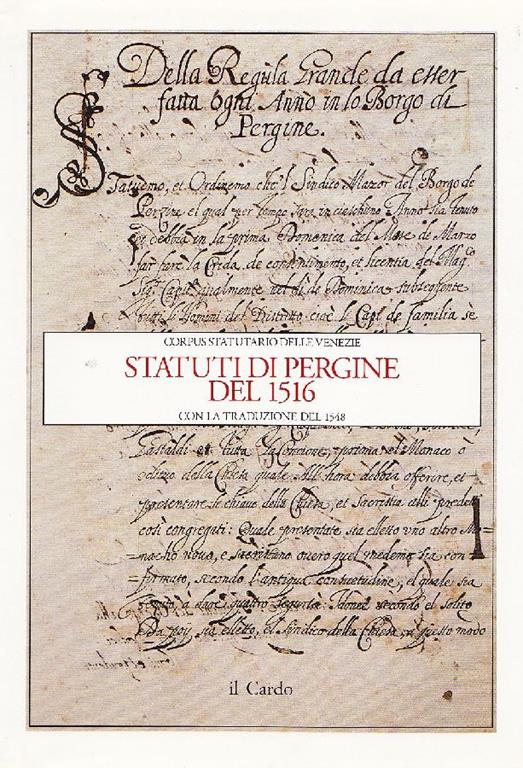 Della Regula Grande da esser
fatta ogni Anno in lo Borgo di
Pergine.
Statuemo, et Ordinemo che'l Sindico Mazor del Borgo de
Perzine el qual per tempo sarà in ciaschuno Anno sia tenuto
et debbia in la prima Domenica del Mese de Marzo
far fare la Crida, de consentimento, et licentia del Mag.co
Sig.r Capit. qualmente nel di de Dominica subsequente
tutti li Homini del Distretto cioè li Capi de famiglia se
CORPUS STATUTARIO DELLE VENEZIE
STATUTI DI PERGINE
DEL 1516
CON LA TRADUZIONE DEL 1548
Gastaldi et tutta la Concione, prima el Monaco ò
edituo della Chiesa quale All'hora debbia offerire, et
presentare le chiave della Chiesa, et Sacristia alli predetti
così congregati: Quale presentate sia elletto uno altro Mo=
=nacho novo, e sacristano overo quel medemo sia con=
=formato, secondo l'antiqua consuetudine, el quale sia
tenuto, à dare quattro segurtà. Idonee secondo el solito
Da poi sia elletto, el Sindico della Chiesa, à questo modo
il Cardo